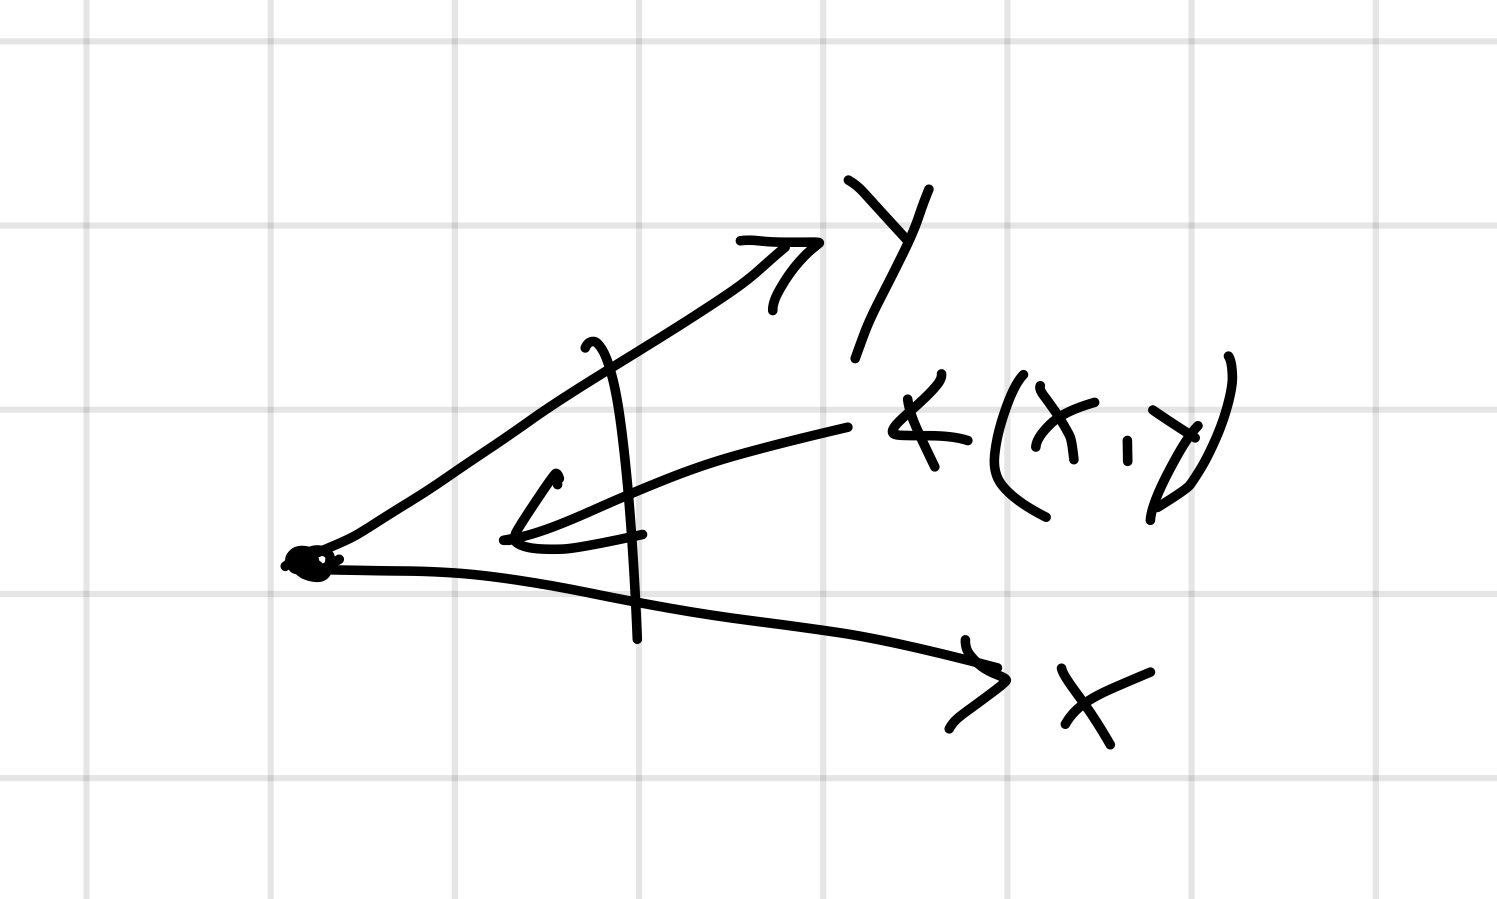 y
∡(x,y)
x